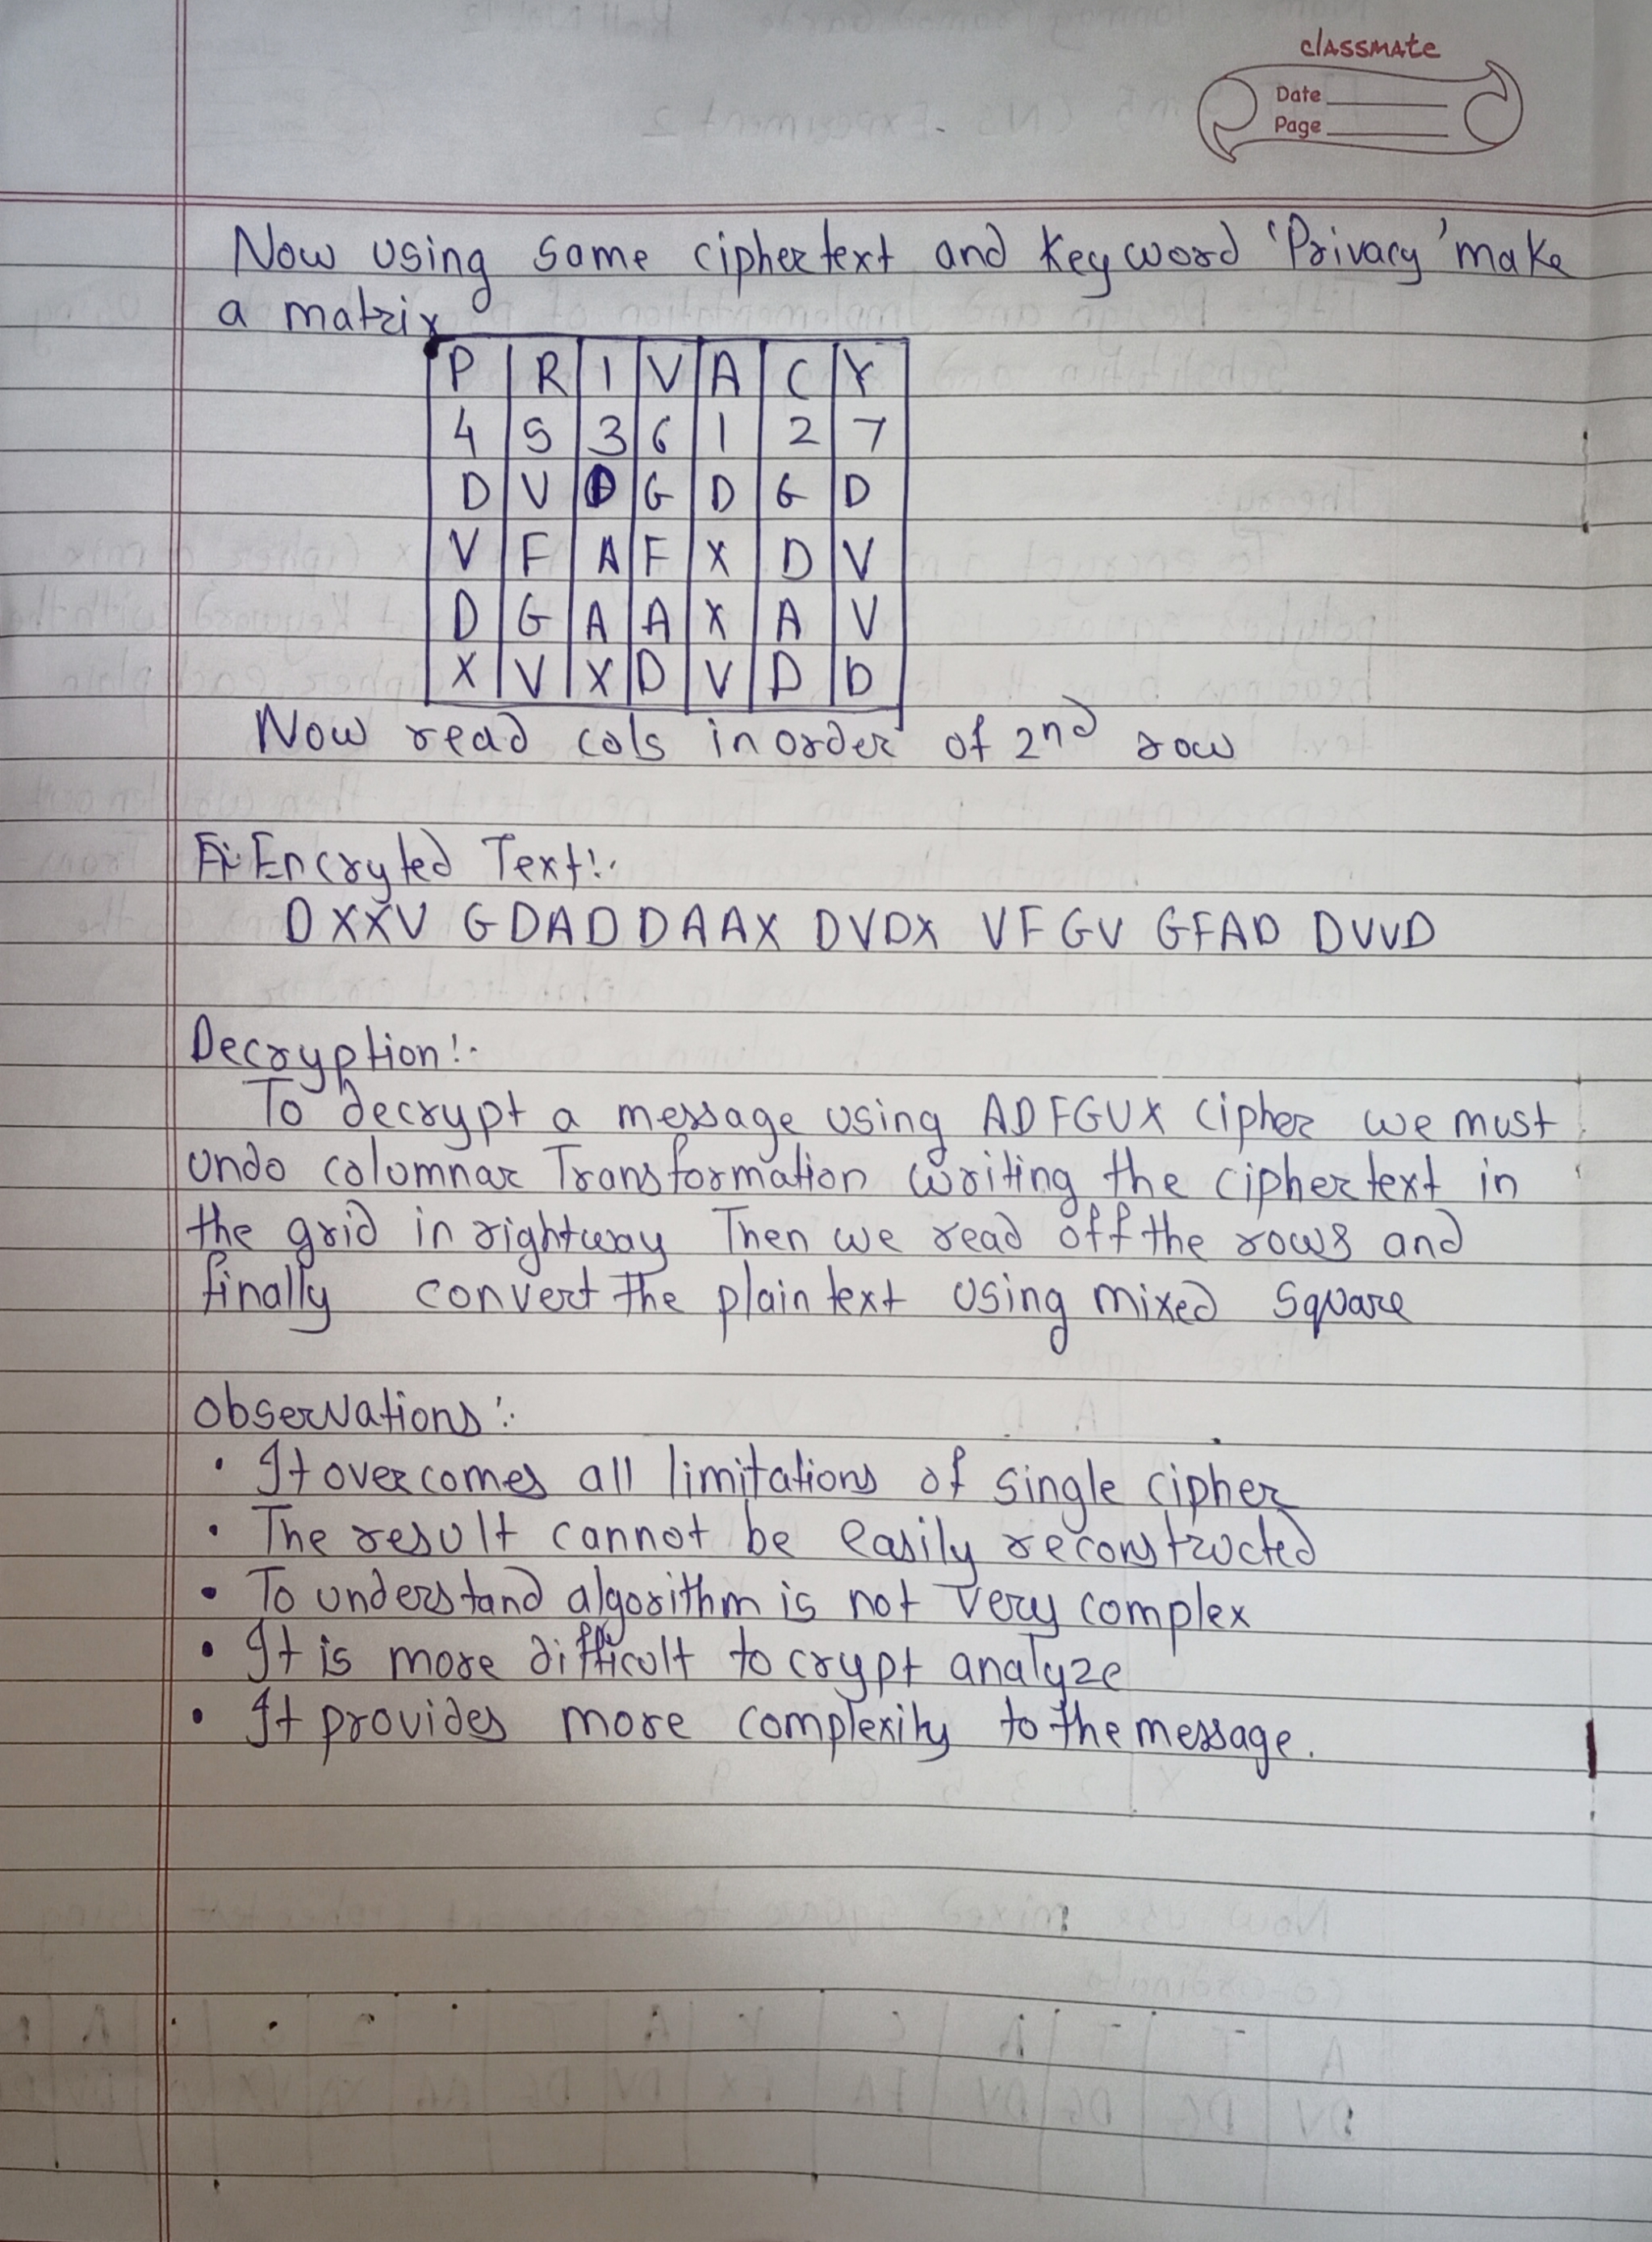 classmate
Date
Page
Now using same ciphertext and keyword 'Privacy' make
a matrix
P R I V A C Y
4 5 3 6 1 2 7
D V D G D G D
V F A F X D V
D G A A X A V
X V X D V D D
Now read cols in order of 2nd row
Encryted Text:-
DXXV GDAD DAAX DVDX VFGV GFAD DVVD
Decryption:-
To decrypt a message using ADFGVX cipher we must
undo columnar Transformation writing the ciphertext in
the grid in rightway Then we read off the rows and
finally convert the plain text using mixed square
observations:-
• It overcomes all limitations of single cipher
• The result cannot be easily reconstructed
• To understand algorithm is not very complex
• It is more difficult to crypt analyze
• It provides more complexity to the message.